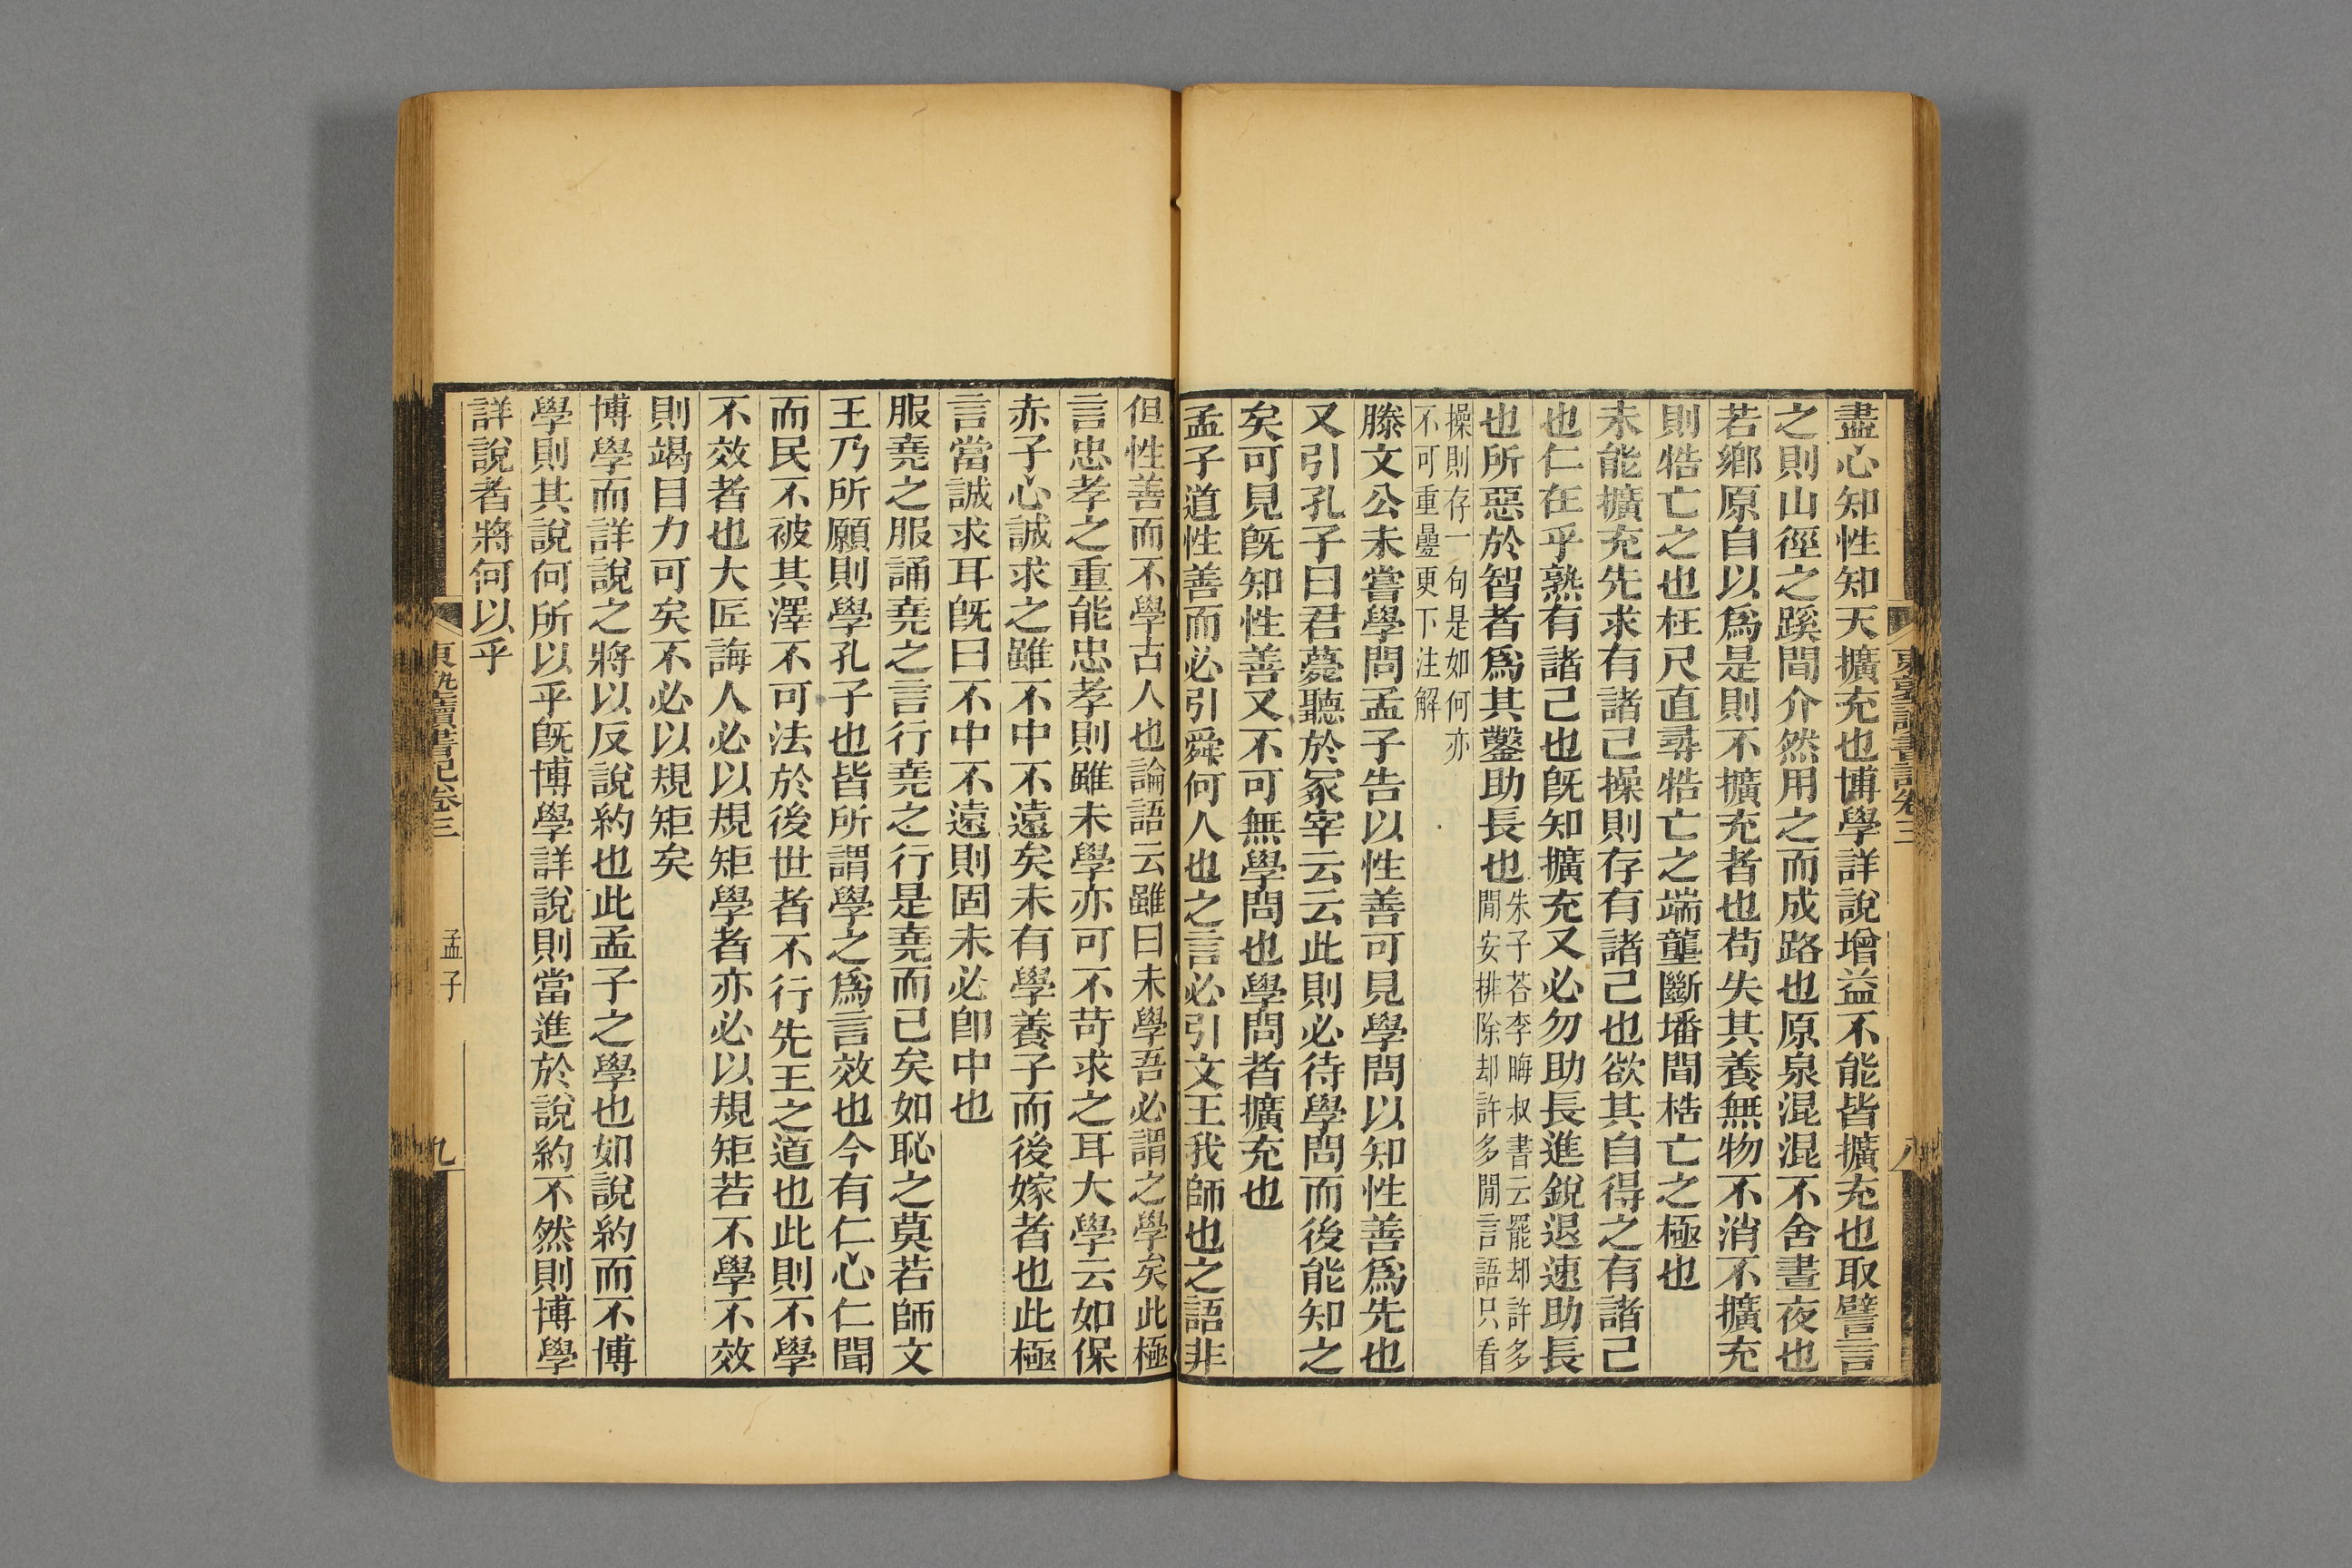 盡心知性知天擴充也博學詳說增益不能皆擴充也取譬言
之則山徑之蹊間介然用之而成路也原泉混混不舍晝夜也
若鄉原自以爲是則不擴充者也苟失其養無物不消不擴充
則牿亡之也枉尺直尋牿亡之端龍斷墦間梏亡之極也
未能擴充先求有諸己操則存有諸己也欲其自得之有諸己
也仁在乎熟有諸己也既知擴充又必勿助長進銳退速助長
也所惡於智者爲其鑿助長也
朱子荅李晦叔書云罷却許多
閒安排除却許多閒言語只看
操則存一句是如何亦
不可重疊更下注解
滕文公未嘗學問孟子告以性善可見學問以知性善爲先也
又引孔子曰君薨聽於冢宰云云此則必待學問而後能知之
矣可見既知性善又不可無學問也學問者擴充也
孟子道性善而必引舜何人也之言必引文王我師也之語非
但性善而不學古人也論語云雖曰未學吾必謂之學矣此極
言忠孝之重能忠孝則雖未學亦可不苛求之耳大學云如保
赤子心誠求之雖不中不遠矣未有學養子而後嫁者也此極
言當誠求耳既曰不中不遠則固未必卽中也
服堯之服誦堯之言行堯之行是堯而已矣如恥之莫若師文
王乃所願則學孔子也皆所謂學之爲言效也今有仁心仁聞
而民不被其澤不可法於後世者不行先王之道也此則不學
不效者也大匠誨人必以規矩學者亦必以規矩若不學不效
則竭目力可矣不必以規矩矣
博學而詳說之將以反說約也此孟子之學也如說約而不博
學則其說何所以乎既博學詳說則當進於說約不然則博學
詳說者將何以乎
東塾讀書記卷三
孟子
九